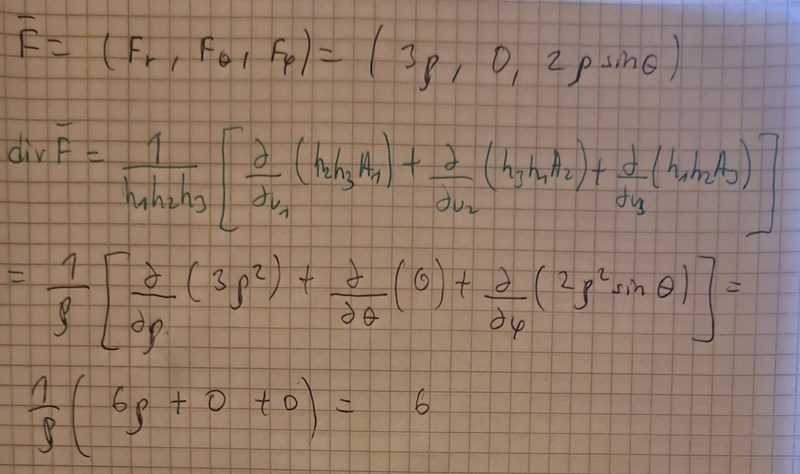 F̅ = (Fr, Fθ, Fφ) = (3ρ, 0, 2ρ sinθ)
div F̅ = 1/(h1h2h3) [ ∂/∂u1 (h2h3A1) + ∂/∂u2 (h3h1A2) + ∂/∂u3 (h1h2A3) ]
= 1/ρ [ ∂/∂ρ (3ρ²) + ∂/∂θ (0) + ∂/∂φ (2ρ² sin θ) ] =
1/ρ ( 6ρ + 0 + 0 ) = 6